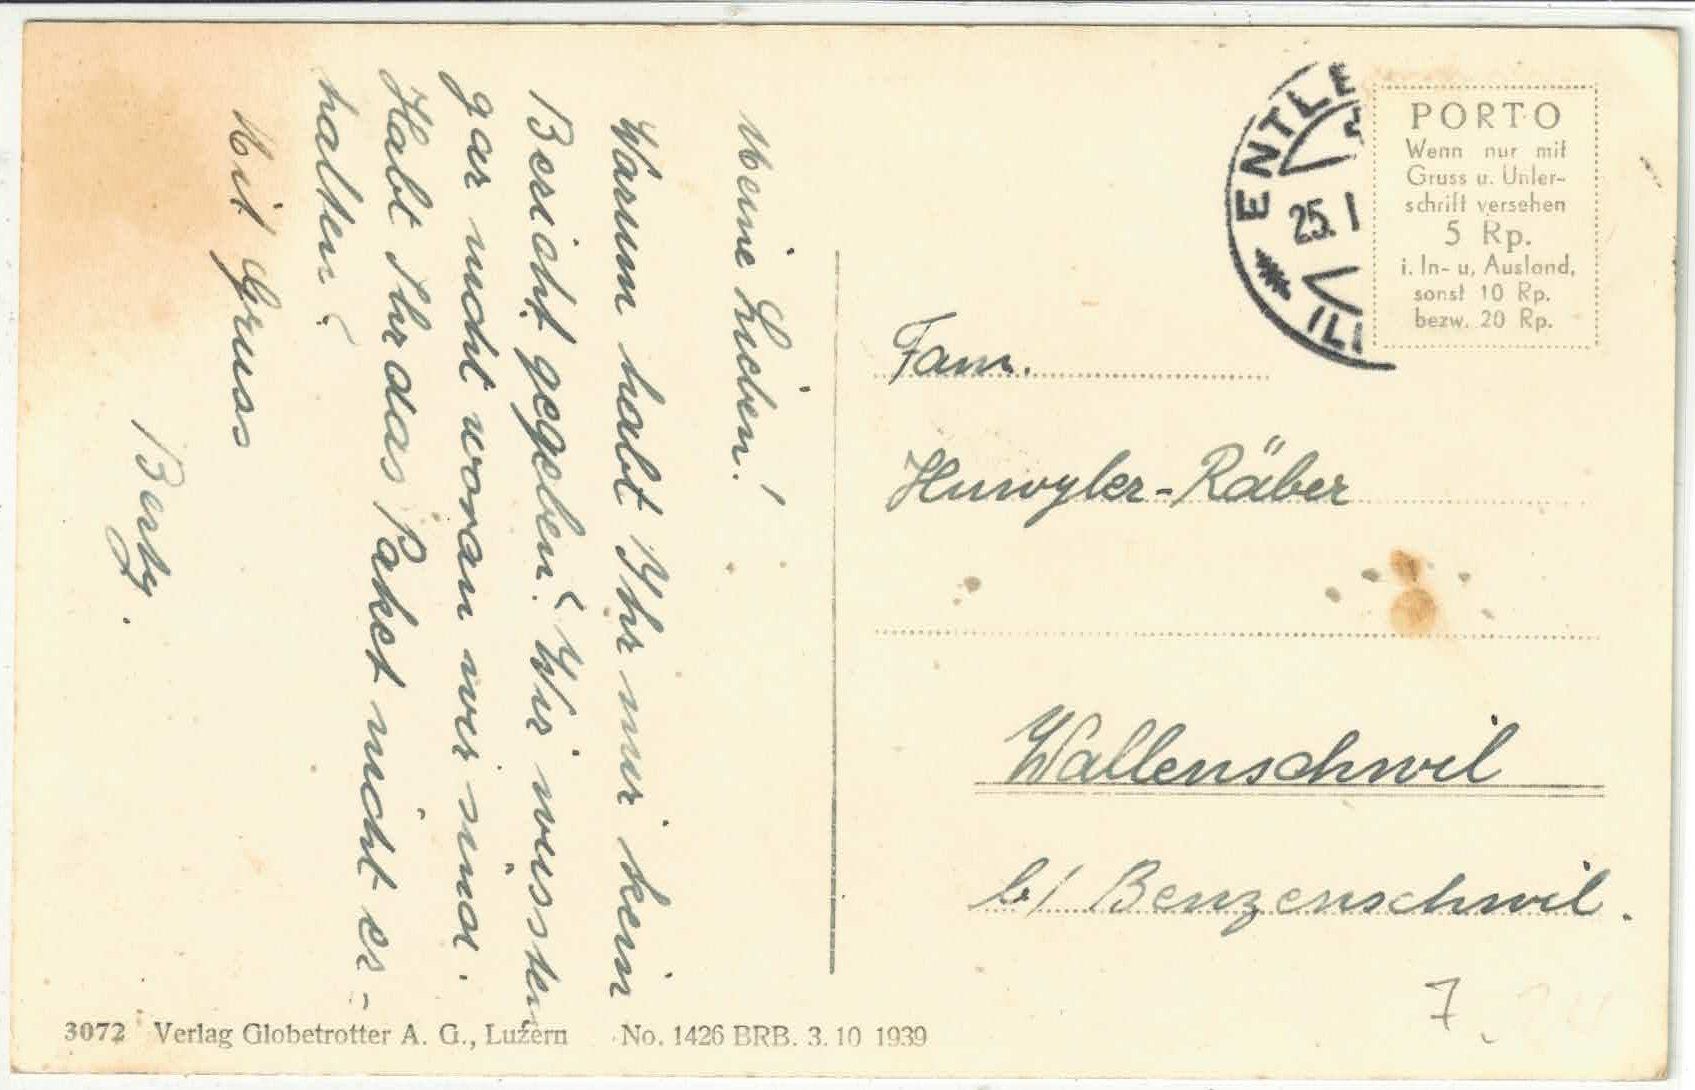 Meine Lieben!
Warum habt Ihr mir kein
Bericht gegeben? Wir wüssten
gar nicht woran wir sind.
Habt Ihr das Paket nicht er=
halten?
Mit Gruss
Berty.
ENTLE
25. I
PORTO
Wenn nur mit
Gruss u. Unter-
schrift versehen
5 Rp.
i. In- u, Ausland,
sonst 10 Rp.
bezw. 20 Rp.
Fam.
Huwyler-Räber
Wallenschwil
b/ Benzenschwil.
7.
3072 Verlag Globetrotter A. G., Luzern No. 1426 BRB. 3. 10 1939